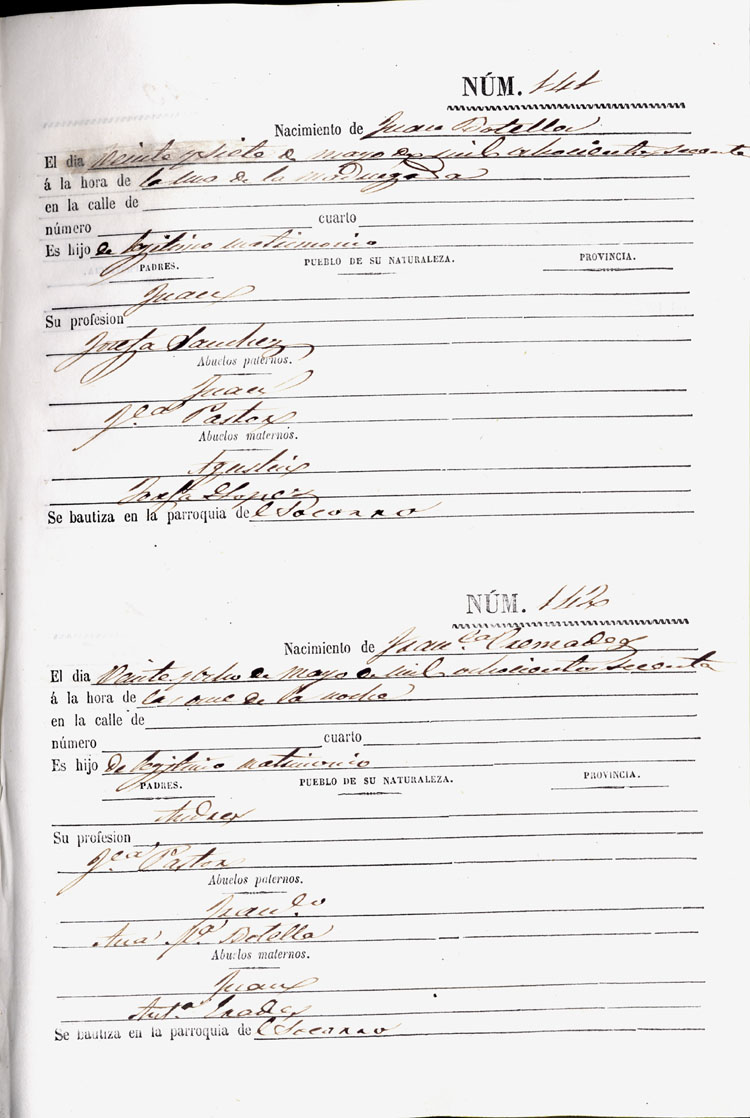 NÚM. 141
Nacimiento de Juan Botella
El dia veinte y siete de mayo de mil ochocientos secenta
á la hora de la una de la madrugada
en la calle de
número cuarto
Es hijo de legitimo matrimonio
PADRES. PUEBLO DE SU NATURALEZA. PROVINCIA.
Juan
Su profesion
Josefa Sanchez
Abuelos paternos.
Juan
Pastor
Abuelos maternos.
Agustin
Josefa Lopez
Se bautiza en la parroquia de el Socorro
NÚM. 142
Nacimiento de Fran.ca Cremades
El dia veinte y ocho de mayo de mil ochocientos secenta
á la hora de las once de la noche
en la calle de
número cuarto
Es hijo de legitimo matrimonio
PADRES. PUEBLO DE SU NATURALEZA. PROVINCIA.
Andres
Su profesion
Pastor
Abuelos paternos.
Fran.co
Ana M.a Botella
Abuelos maternos.
Juan
Ant.a Prades
Se bautiza en la parroquia de el Socorro